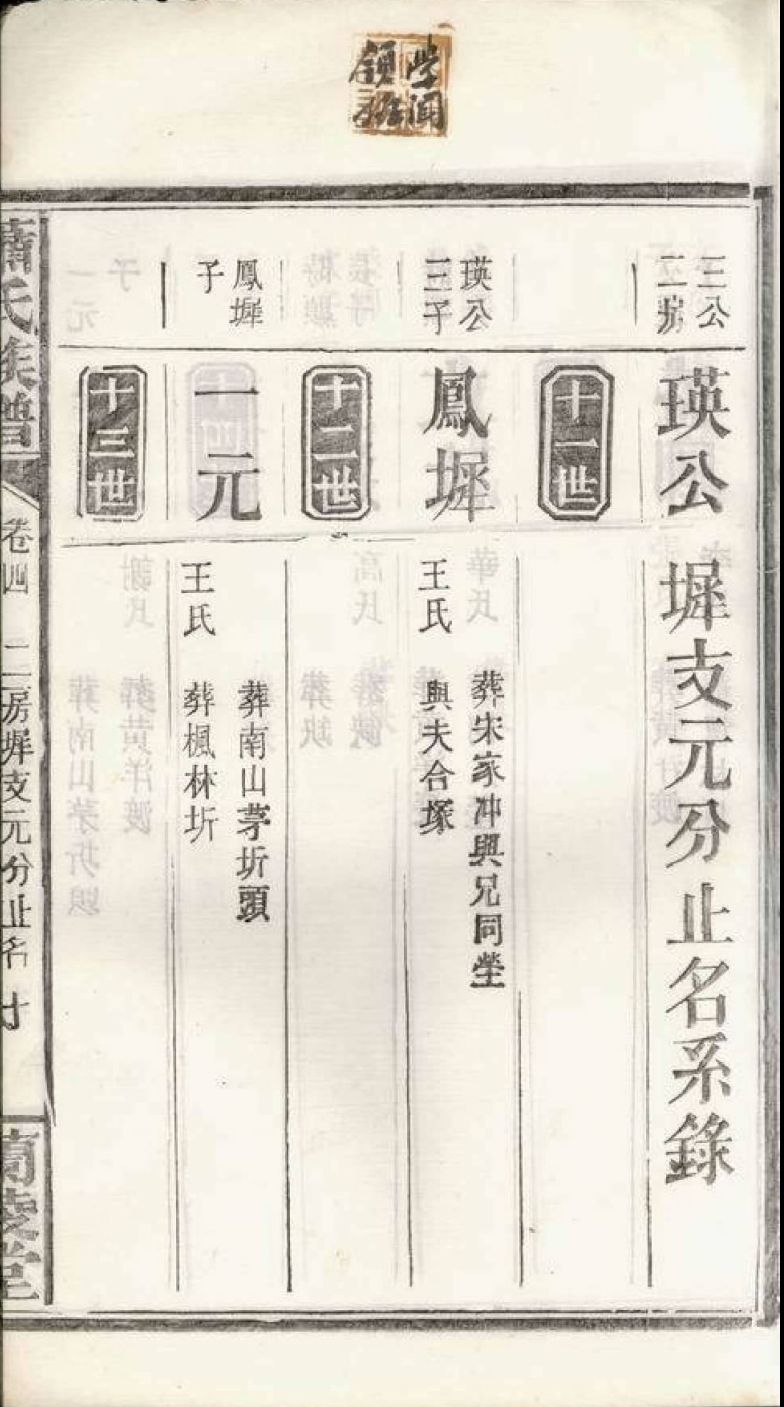 學問
領袖
三公
二房
瑛公
墀支元分止名系錄
十一世
瑛公
三子
鳳墀
葬宋家冲與兄同塋
王氏
與夫合塚
十二世
鳳墀
子
一元
葬南山茅圻頭
王氏
葬楓林圻
十三世
蕭氏族譜
卷四
二房墀支元分止名
十
蘭陵堂